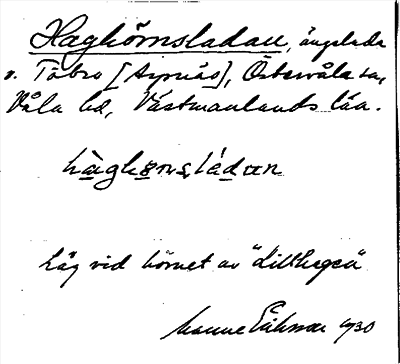 Haghörnsladan, ängslada
v. Tobro [Aspnäs], Östervåla sn,
Våla hd, Västmanlands län.
hàghö̱rnsládan
Låg vid hörnet av "Lillhagen"
Manne Eriksson 1930